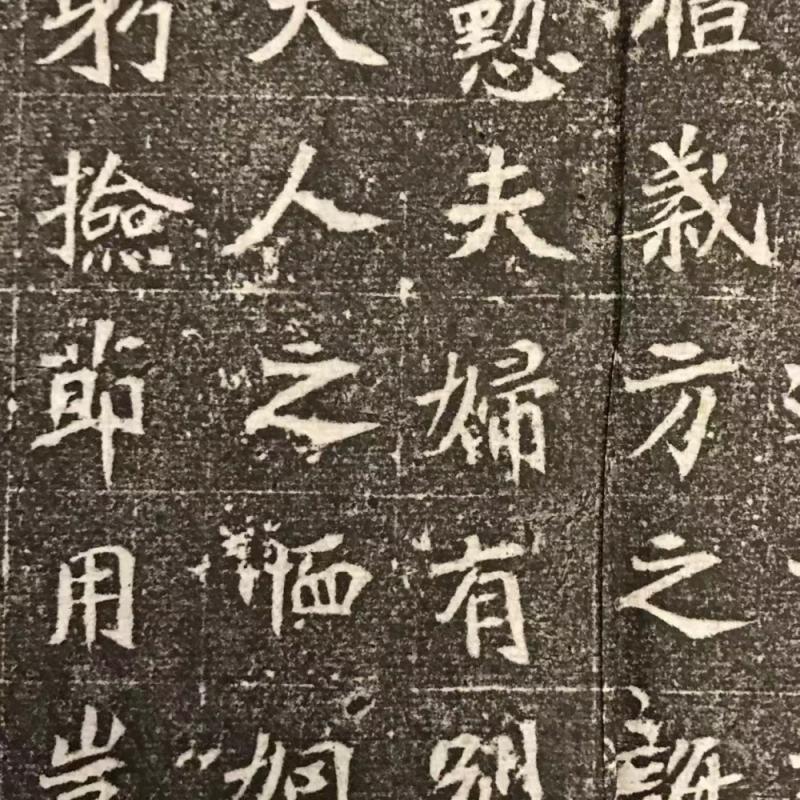 義方之誨
懃夫婦有別
大人之恤姻
躬撿節用豈